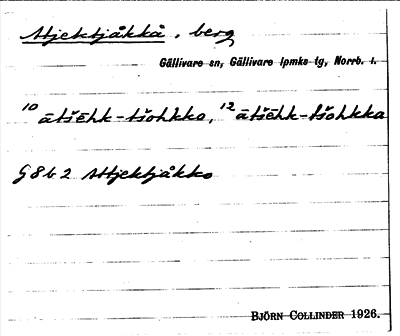 Atjektjåkkå, berg
Gällivare sn, Gällivare lpmks tg, Norrb. l.
10 ātšēhk-tšohkko, 12 ātšēhk-tšohkka
G8b2 Atjektjåkko
BJÖRN COLLINDER 1926.